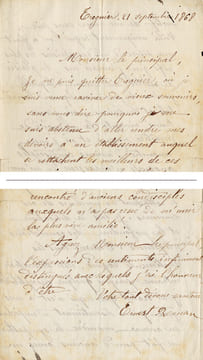 Tréguier, 21 septembre 1868
Monsieur le principal,
Je ne puis quitter Tréguier, où je
suis venu raviver des vieux souvenirs,
sans vous dire pourquoi je me
suis abstenu d'aller rendre mes
devoirs à un établissement auquel
se rattachent les meilleurs de ces
rencontré d'anciens condisciples
auxquels n'a pas cessé de m'unir
la plus vive amitié.
Agréez Monsieur le principal,
l'expression des sentiments
distingués avec lesquels j'ai l'honneur
d'être
Votre tout dévoué serviteur
Ernest Renan